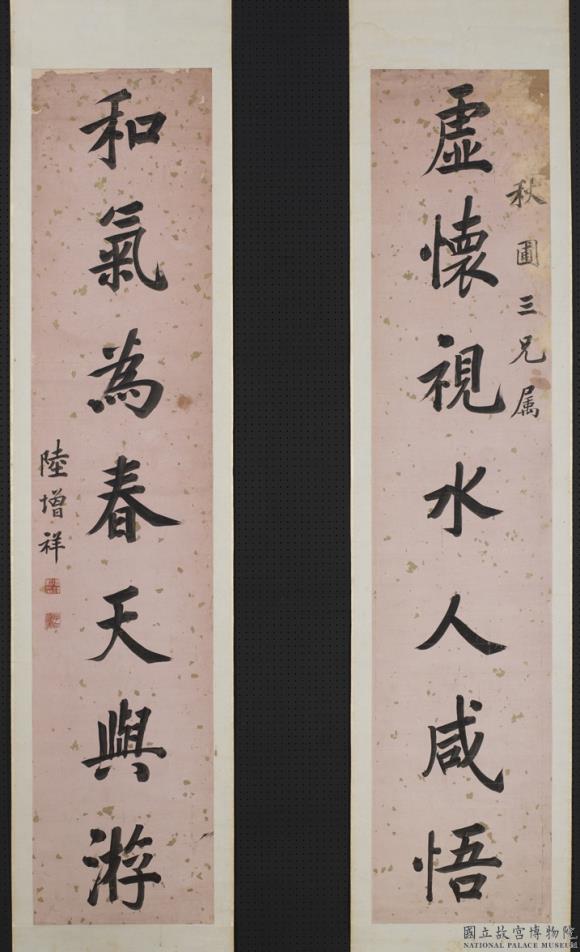 秋圃三兄属
虛懷視水人咸悟
和氣為春天與游
陸增祥
國立故宮博物院
NATIONAL PALACE MUSEUM